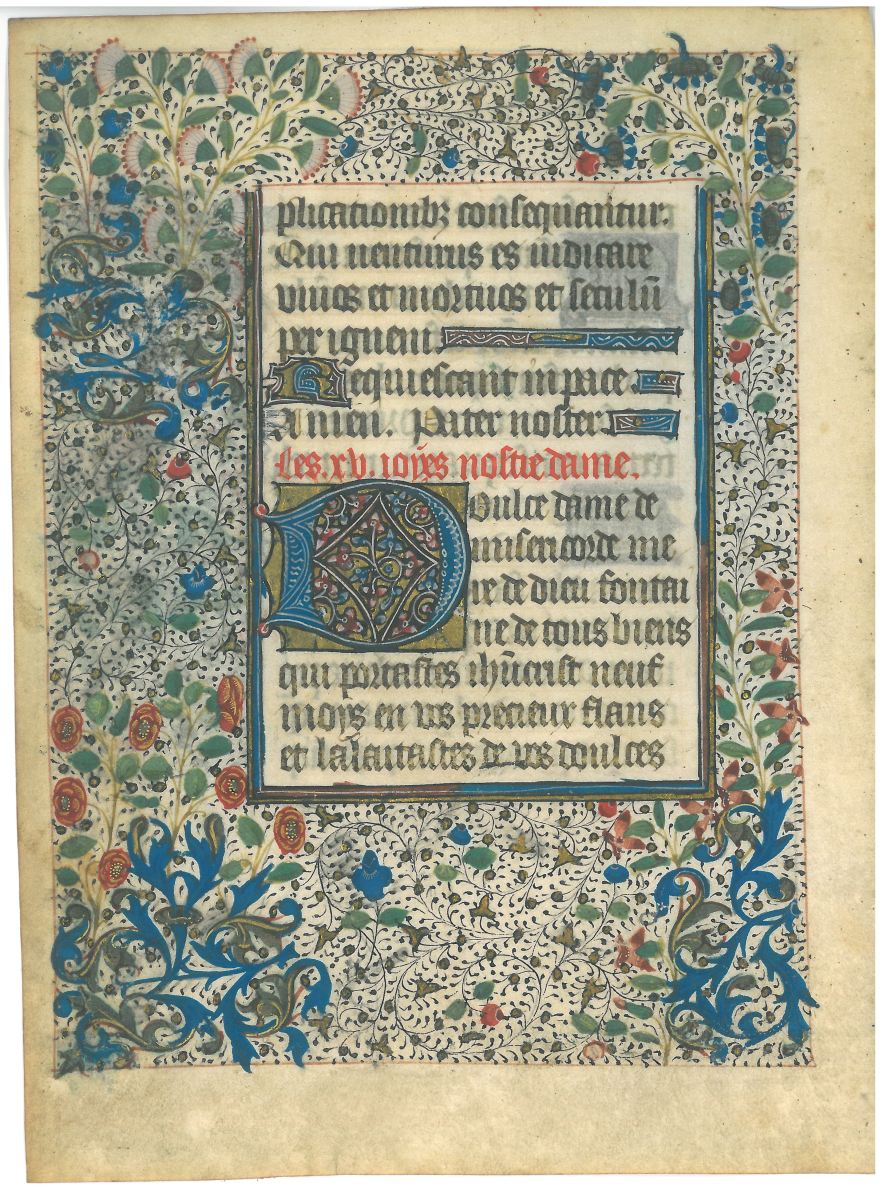 plicationibꝫ consequantur.
Qui uenturus es iudicare
viuos et mortuos et seculū
per ignem.
Requiescant in pace
Amen. Pater noster.
Les .xv. ioyes nostre dame.
Doulce dame de
misericorde me
re de dieu fontai
ne de tous biens
qui portastes ihūcrist neuf
moys en vos precieux flans
et lalaitastes de vos doulces